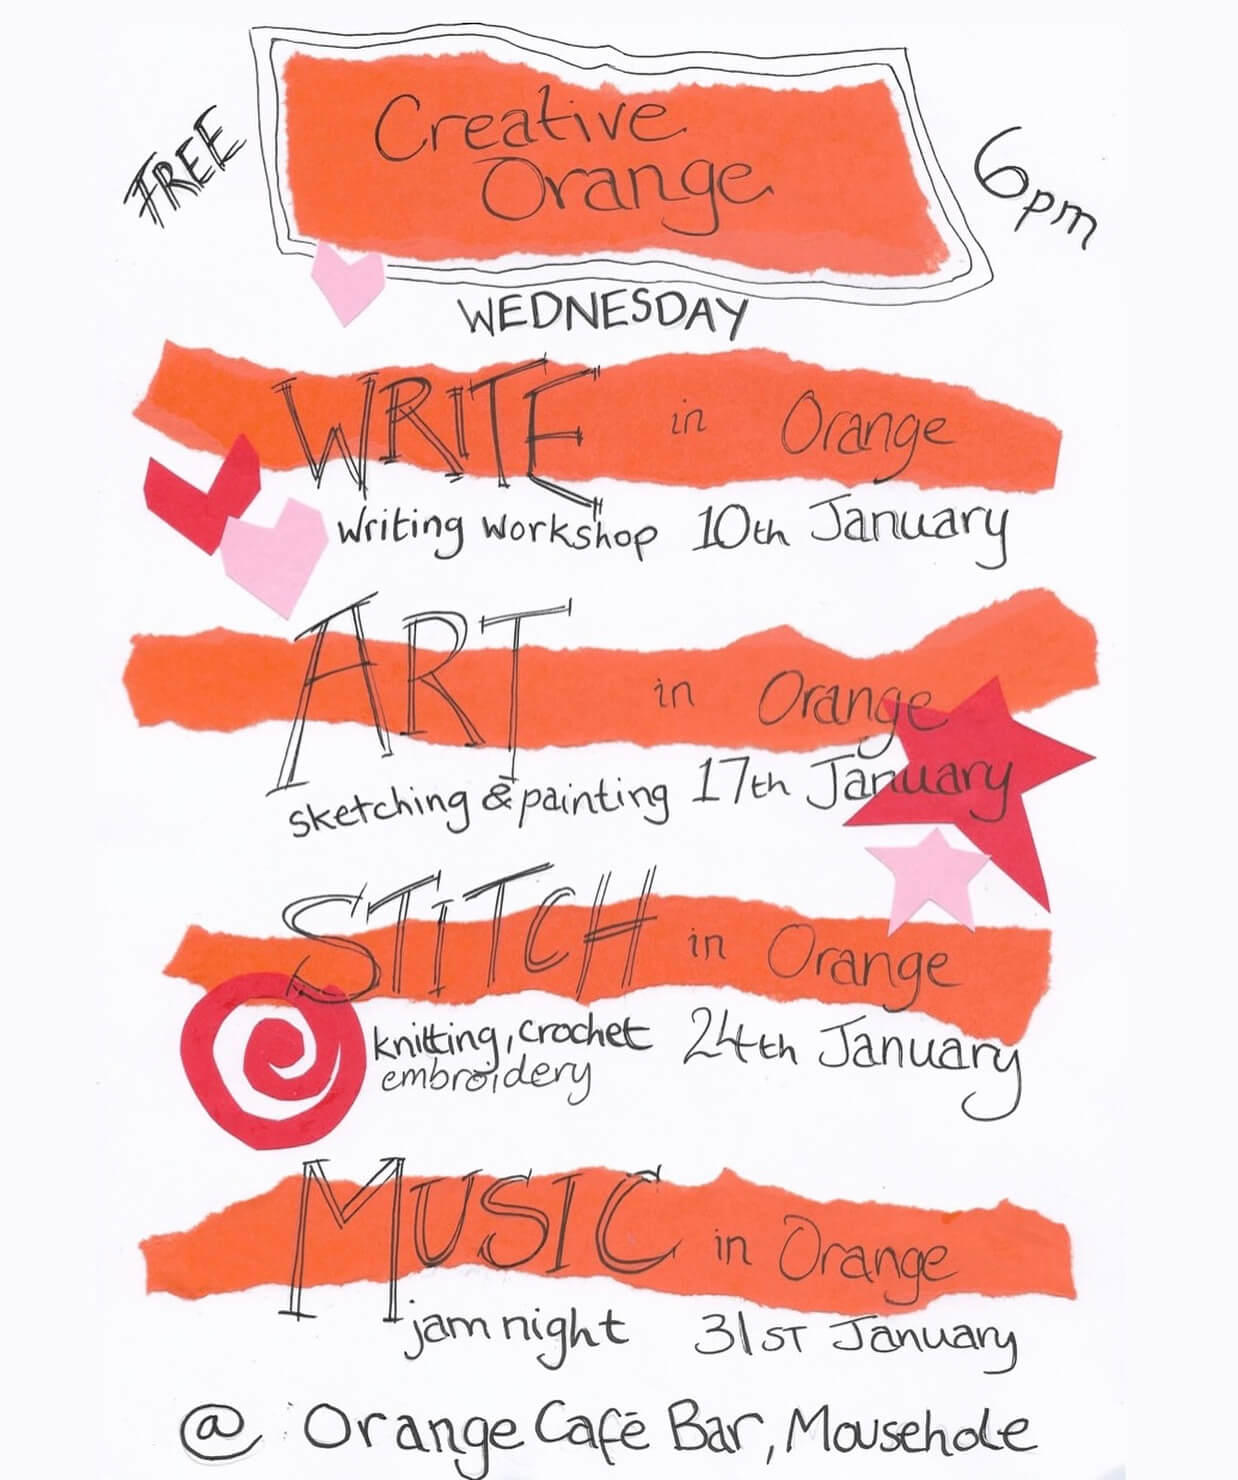 FREE
Creative
Orange
6pm
WEDNESDAY
WRITE in Orange
writing workshop 10th January
ART in Orange
sketching & painting 17th January
STITCH in Orange
knitting, crochet 24th January
embroidery
MUSIC in Orange
jam night 31ST January
@ Orange Café Bar, Mousehole